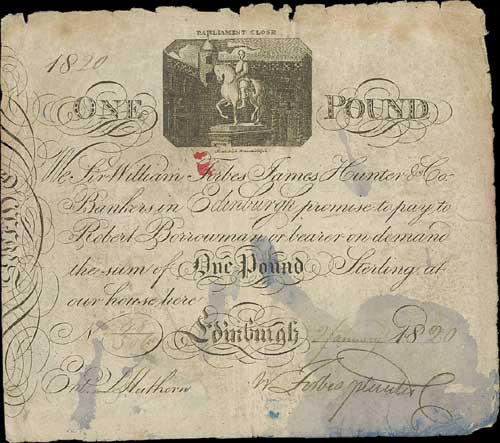 PARLIAMENT CLOSE
1820
ONE POUND
We Sir William Forbes James Hunter & Co.
Bankers in Edinburgh promise to pay to
Robert Borrowman or bearer on demand
the sum of One Pound Sterling at
our house here
No
Edinburgh 2 January 1820
Entd.
Wm Forbes